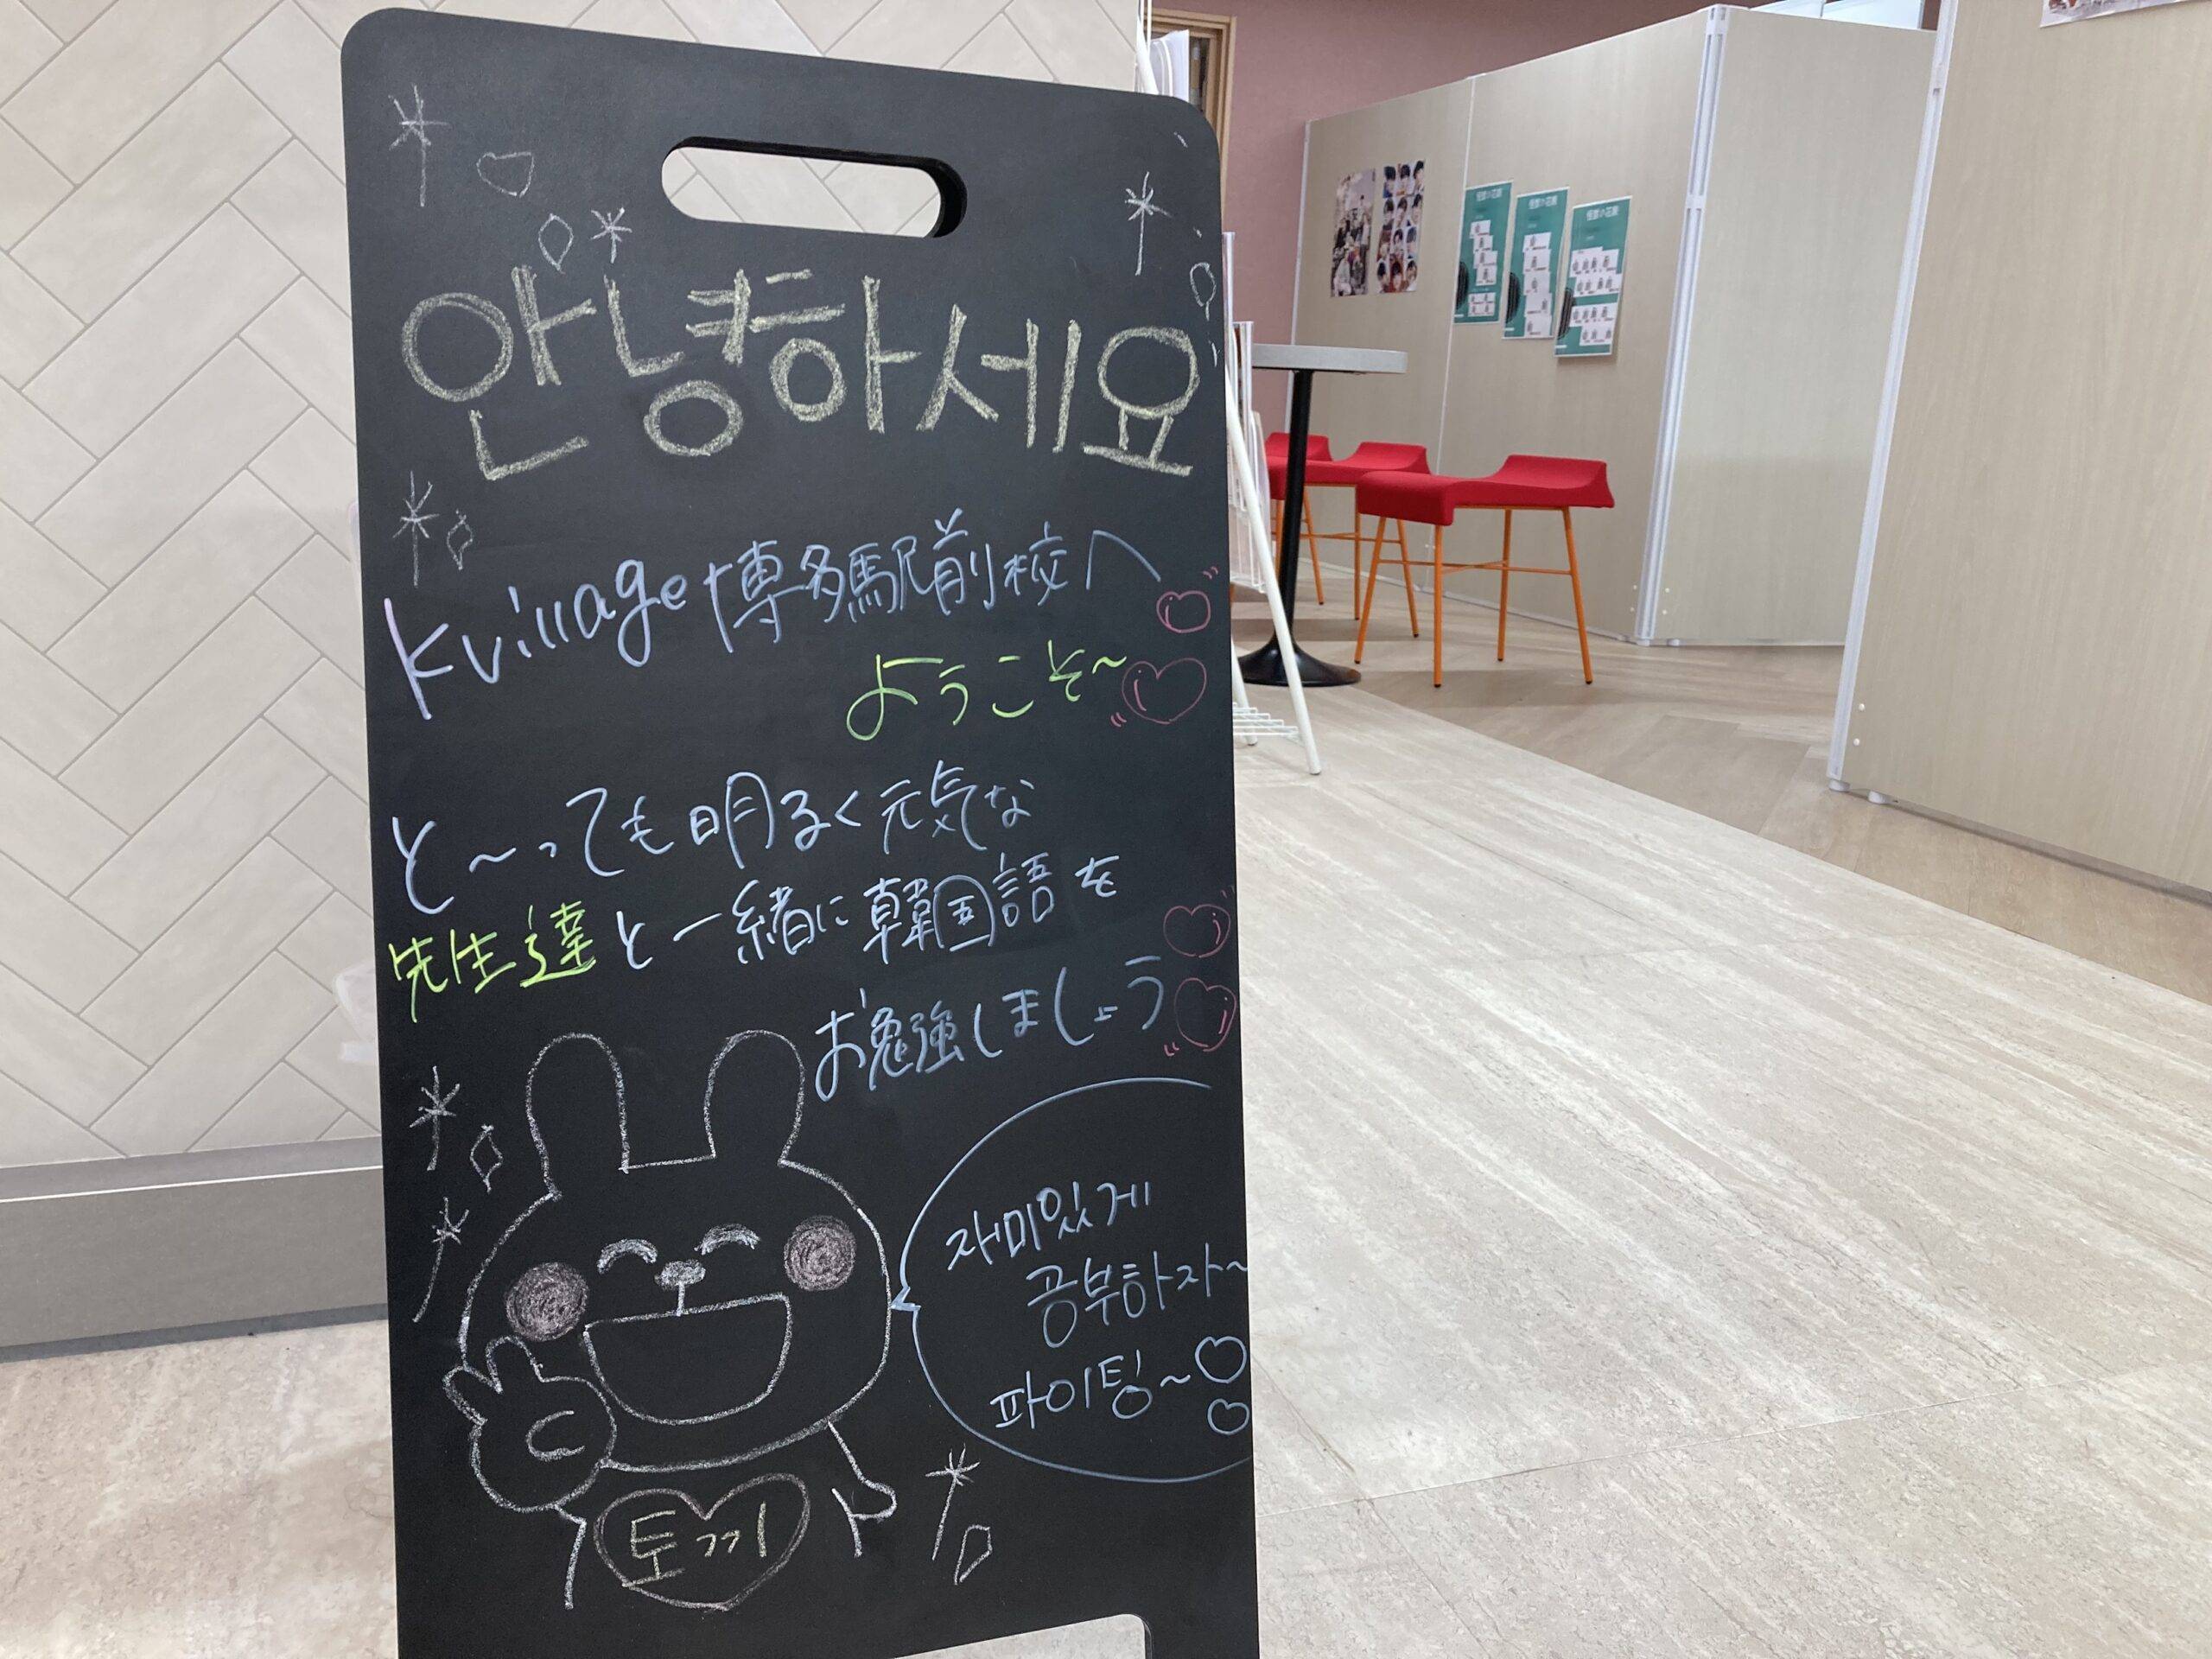 안녕하세요
kvillage博多駅前校へ
ようこそ~
と~っても明るく元気な
先生達と一緒に韓国語を
お勉強しましょう
재미있게
공부하자~
파이팅~
토끼